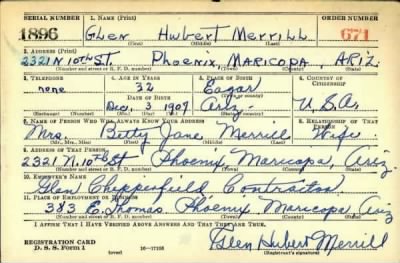 SERIAL NUMBER 1. NAME (Print) ORDER NUMBER
1896 Glen Hubert Merrill 671
(First) (Middle) (Last)
2. ADDRESS (Print)
2321 N 10th ST. Phoenix, MARICOPA, ARIZ.
(Number and street or R. F. D. number) (Town) (County) (State)
3. TELEPHONE 4. AGE IN YEARS 5. PLACE OF BIRTH 6. COUNTRY OF CITIZENSHIP
none 32 Eagar
DATE OF BIRTH
Dec, 3, 1909 Ariz. U.S.A.
7. NAME OF PERSON WHO WILL ALWAYS KNOW YOUR ADDRESS 8. RELATIONSHIP OF THAT PERSON
Mrs. Betty Jane Merrill Wife
(Mr., Mrs., Miss) (First) (Middle) (Last)
9. ADDRESS OF THAT PERSON
2321 N. 10th St Phoenix, Maricopa, Ariz
(Number and street or R. F. D. number) (Town) (County) (State)
10. EMPLOYER'S NAME
Glen Chipperfield Contractor
11. PLACE OF EMPLOYMENT OR BUSINESS
383 E. Thomas. Phoenix, Maricopa Ariz
(Number and street or R. F. D. number) (Town) (County) (State)
I AFFIRM THAT I HAVE VERIFIED ABOVE ANSWERS AND THAT THEY ARE TRUE.
REGISTRATION CARD
D. S. S. Form 1 (over) 16-17105
Glen Hubert Merrill
(Registrant's signature)